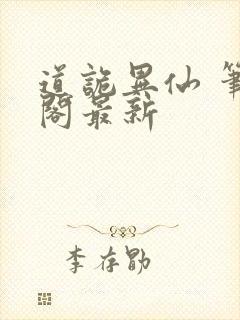 道詭異仙 筆
閣最新
李存勖